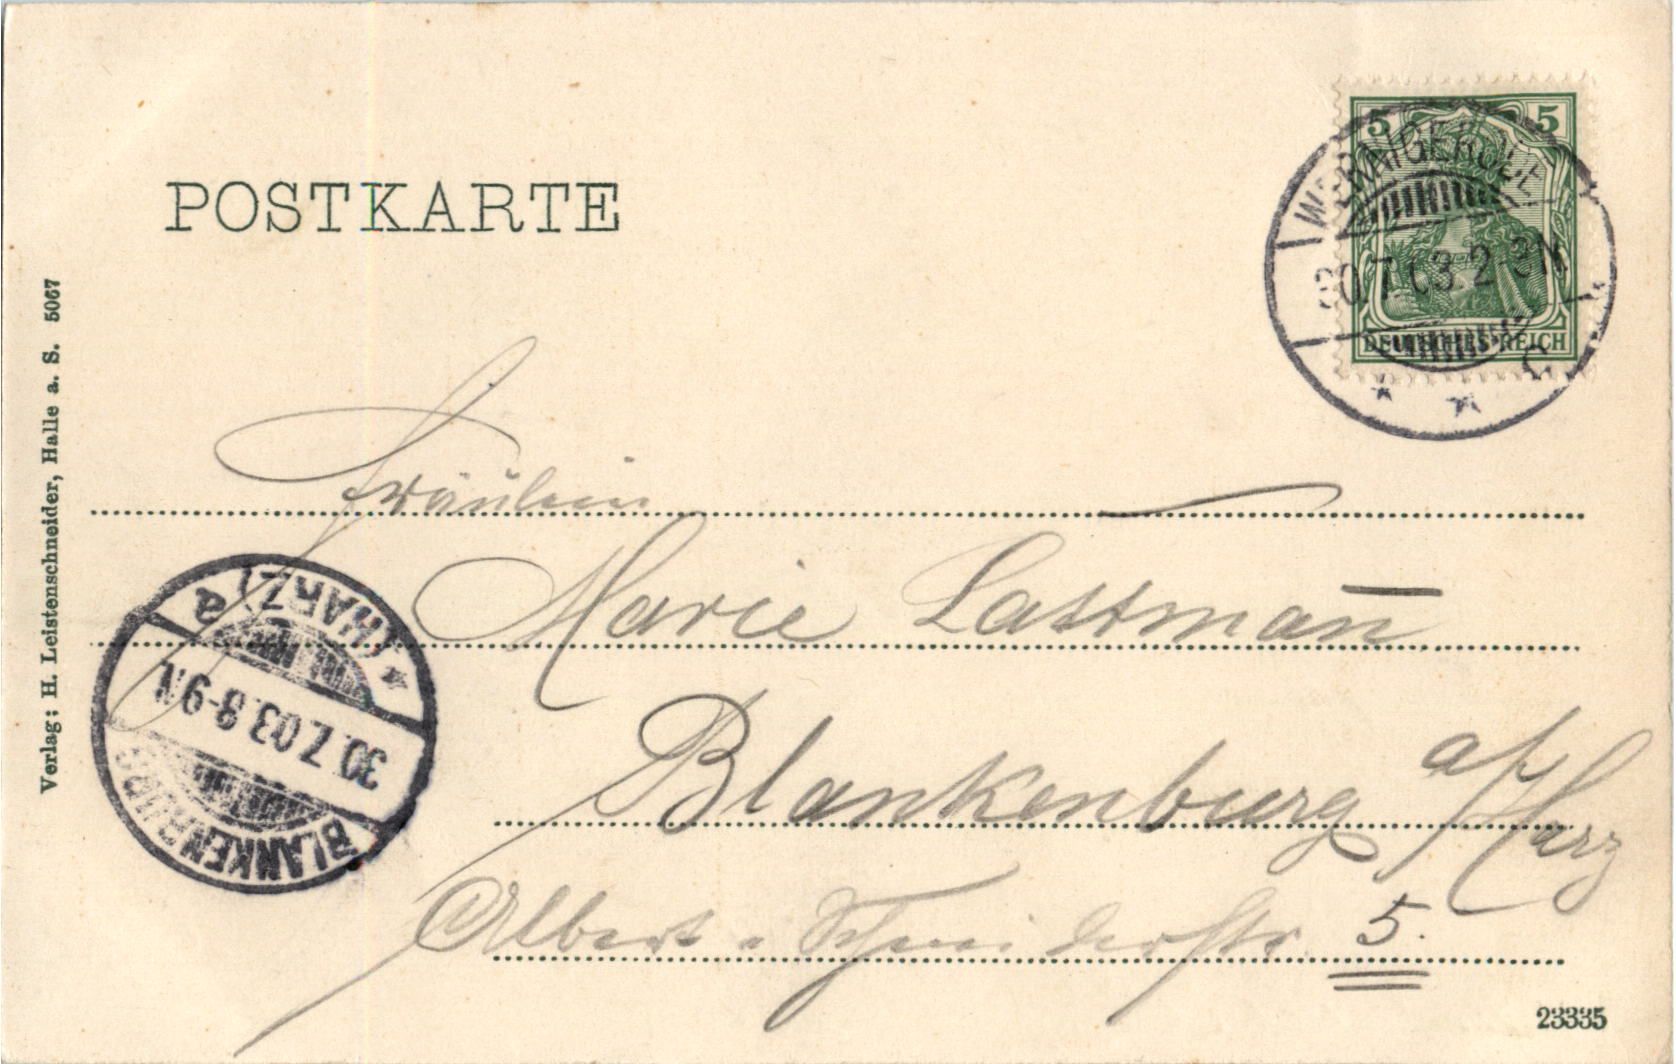 POSTKARTE
5 5
DEUTSCHES REICH
WERNIGERODE
30.7.03.2-3N
Verlag: H. Leistenschneider, Halle a. S. 5067
Fräulein
Marie Lattmañ
Blankenburg a/Harz
Albert-Schneiderstr. 5.
(HARZ) a
30.7.03.8-9N.
BLANKENBURG
23335